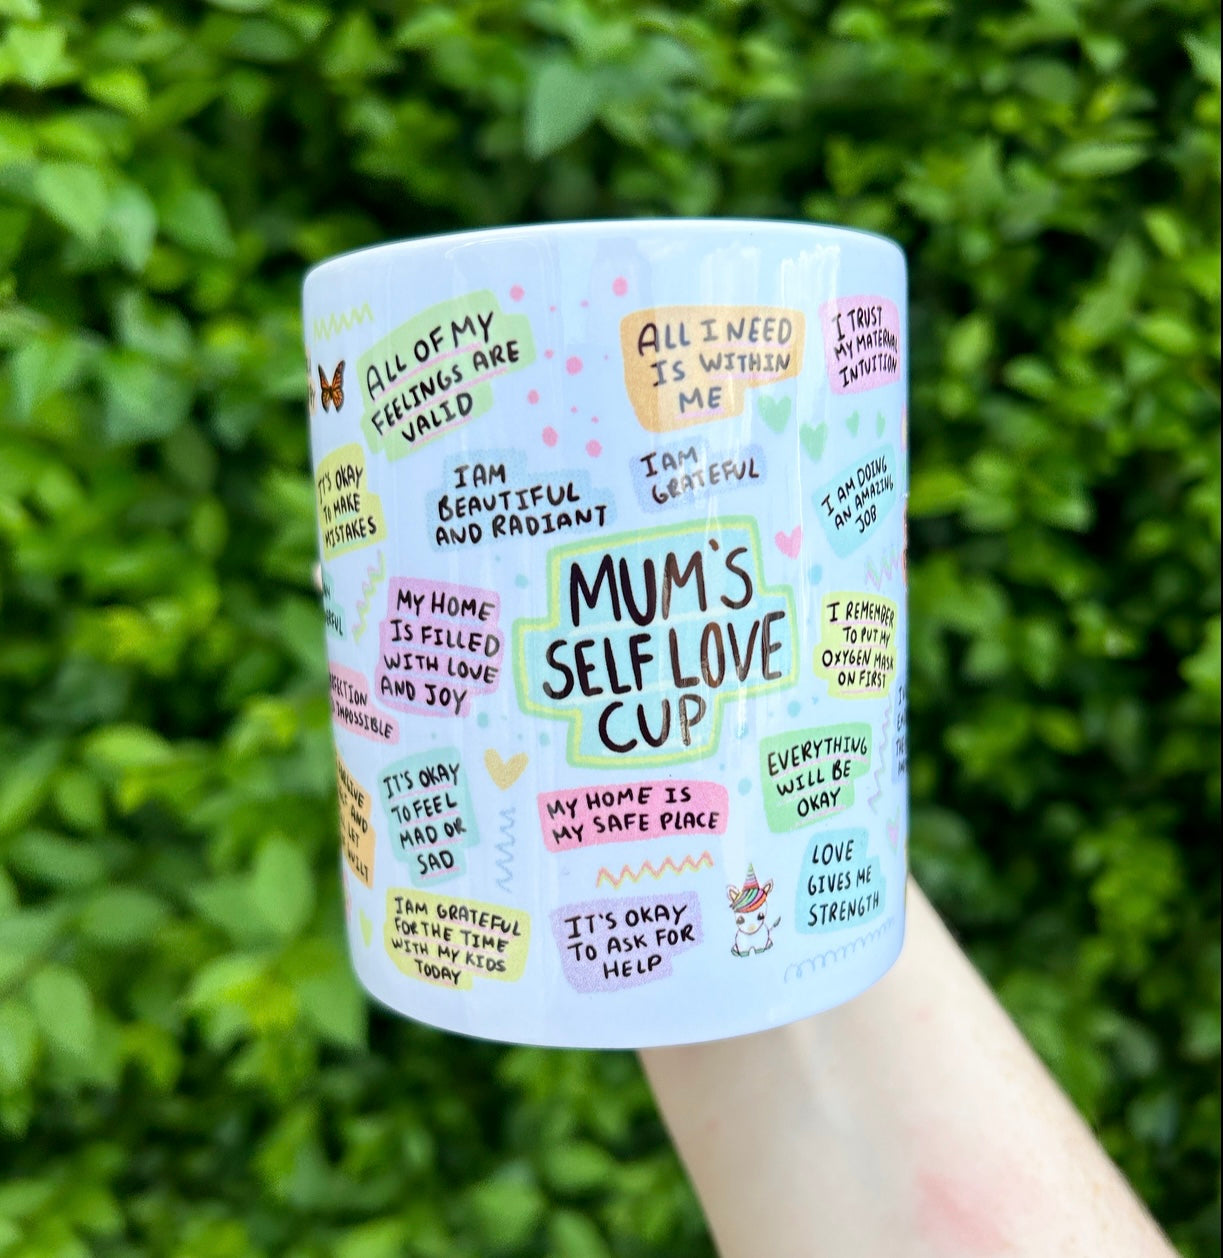 ALL OF MY
FEELINGS ARE
VALID
ALL I NEED
IS WITHIN
ME
I TRUST
MY MATERNAL
INTUITION
IT'S OKAY
TO MAKE
MISTAKES
I AM
BEAUTIFUL
AND RADIANT
I AM
GRATEFUL
I AM DOING
AN AMAZING
JOB
MUM'S
SELF LOVE
CUP
MY HOME
IS FILLED
WITH LOVE
AND JOY
I REMEMBER
TO PUT MY
OXYGEN MASK
ON FIRST
IMPOSSIBLE
IT'S OKAY
TO FEEL
MAD OR
SAD
MY HOME IS
MY SAFE PLACE
EVERYTHING
WILL BE
OKAY
AND
LET
LOVE
GIVES ME
STRENGTH
I AM GRATEFUL
FOR THE TIME
WITH MY KIDS
TODAY
IT'S OKAY
TO ASK FOR
HELP